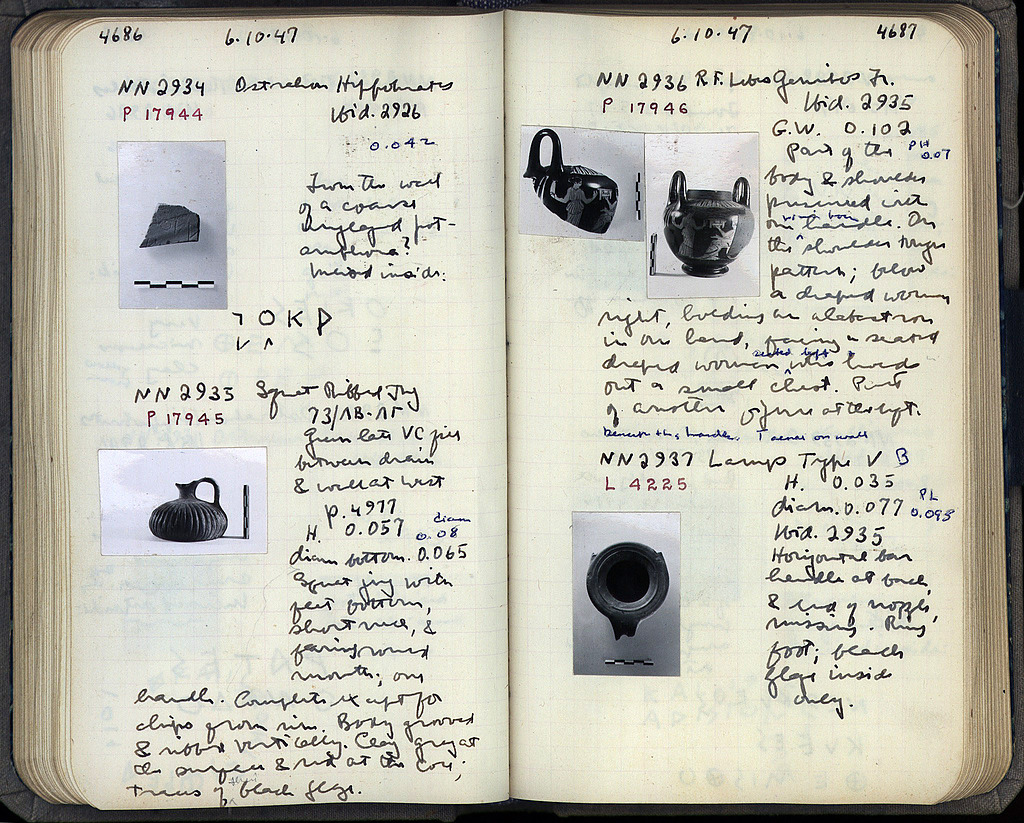 4686 6·10·47
NN 2934 Ostrakon Hippokrates
P 17944 Ibid. 2926
0.042
From the wall
of a coarse
unglazed pot-
amphora?
Incised inside:
ΟΚΡ
NN 2935 Squat Ribbed Jug
P 17945 73/ΙΒ-ΙΕ
Green late VC fill
between drain
& wall at West
p. 4977
H. 0.057 diam 0.08
diam bottom. 0.065
Squat jug with
flat bottom,
short neck, &
flaring round
mouth; one
handle. Complete except for
chips from rim. Body grooved
& ribbed vertically. Clay grey at
the surface & red at the core;
traces of black glaze.
6·10·47 4687
NN 2936 R.F. Lebes Gamikos Fr.
P 17946 Ibid. 2935
G.W. 0.102
Part of the PH 0.07
body & shoulder
preserved with
one handle. On
the shoulder tongue
pattern; below
a draped woman
right, holding an alabastron
in one hand, facing a seated
draped woman, who holds
seated left
out a small chest. Part
of another figure at the left.
beneath the handle.
NN 2937 Lamp Type V B
L 4225 H. 0.035
diam. 0.077 PL 0.093
Ibid. 2935
Horizontal bar
handle at back,
& end of nozzle,
missing. Ring
foot; black
glaze inside
only.